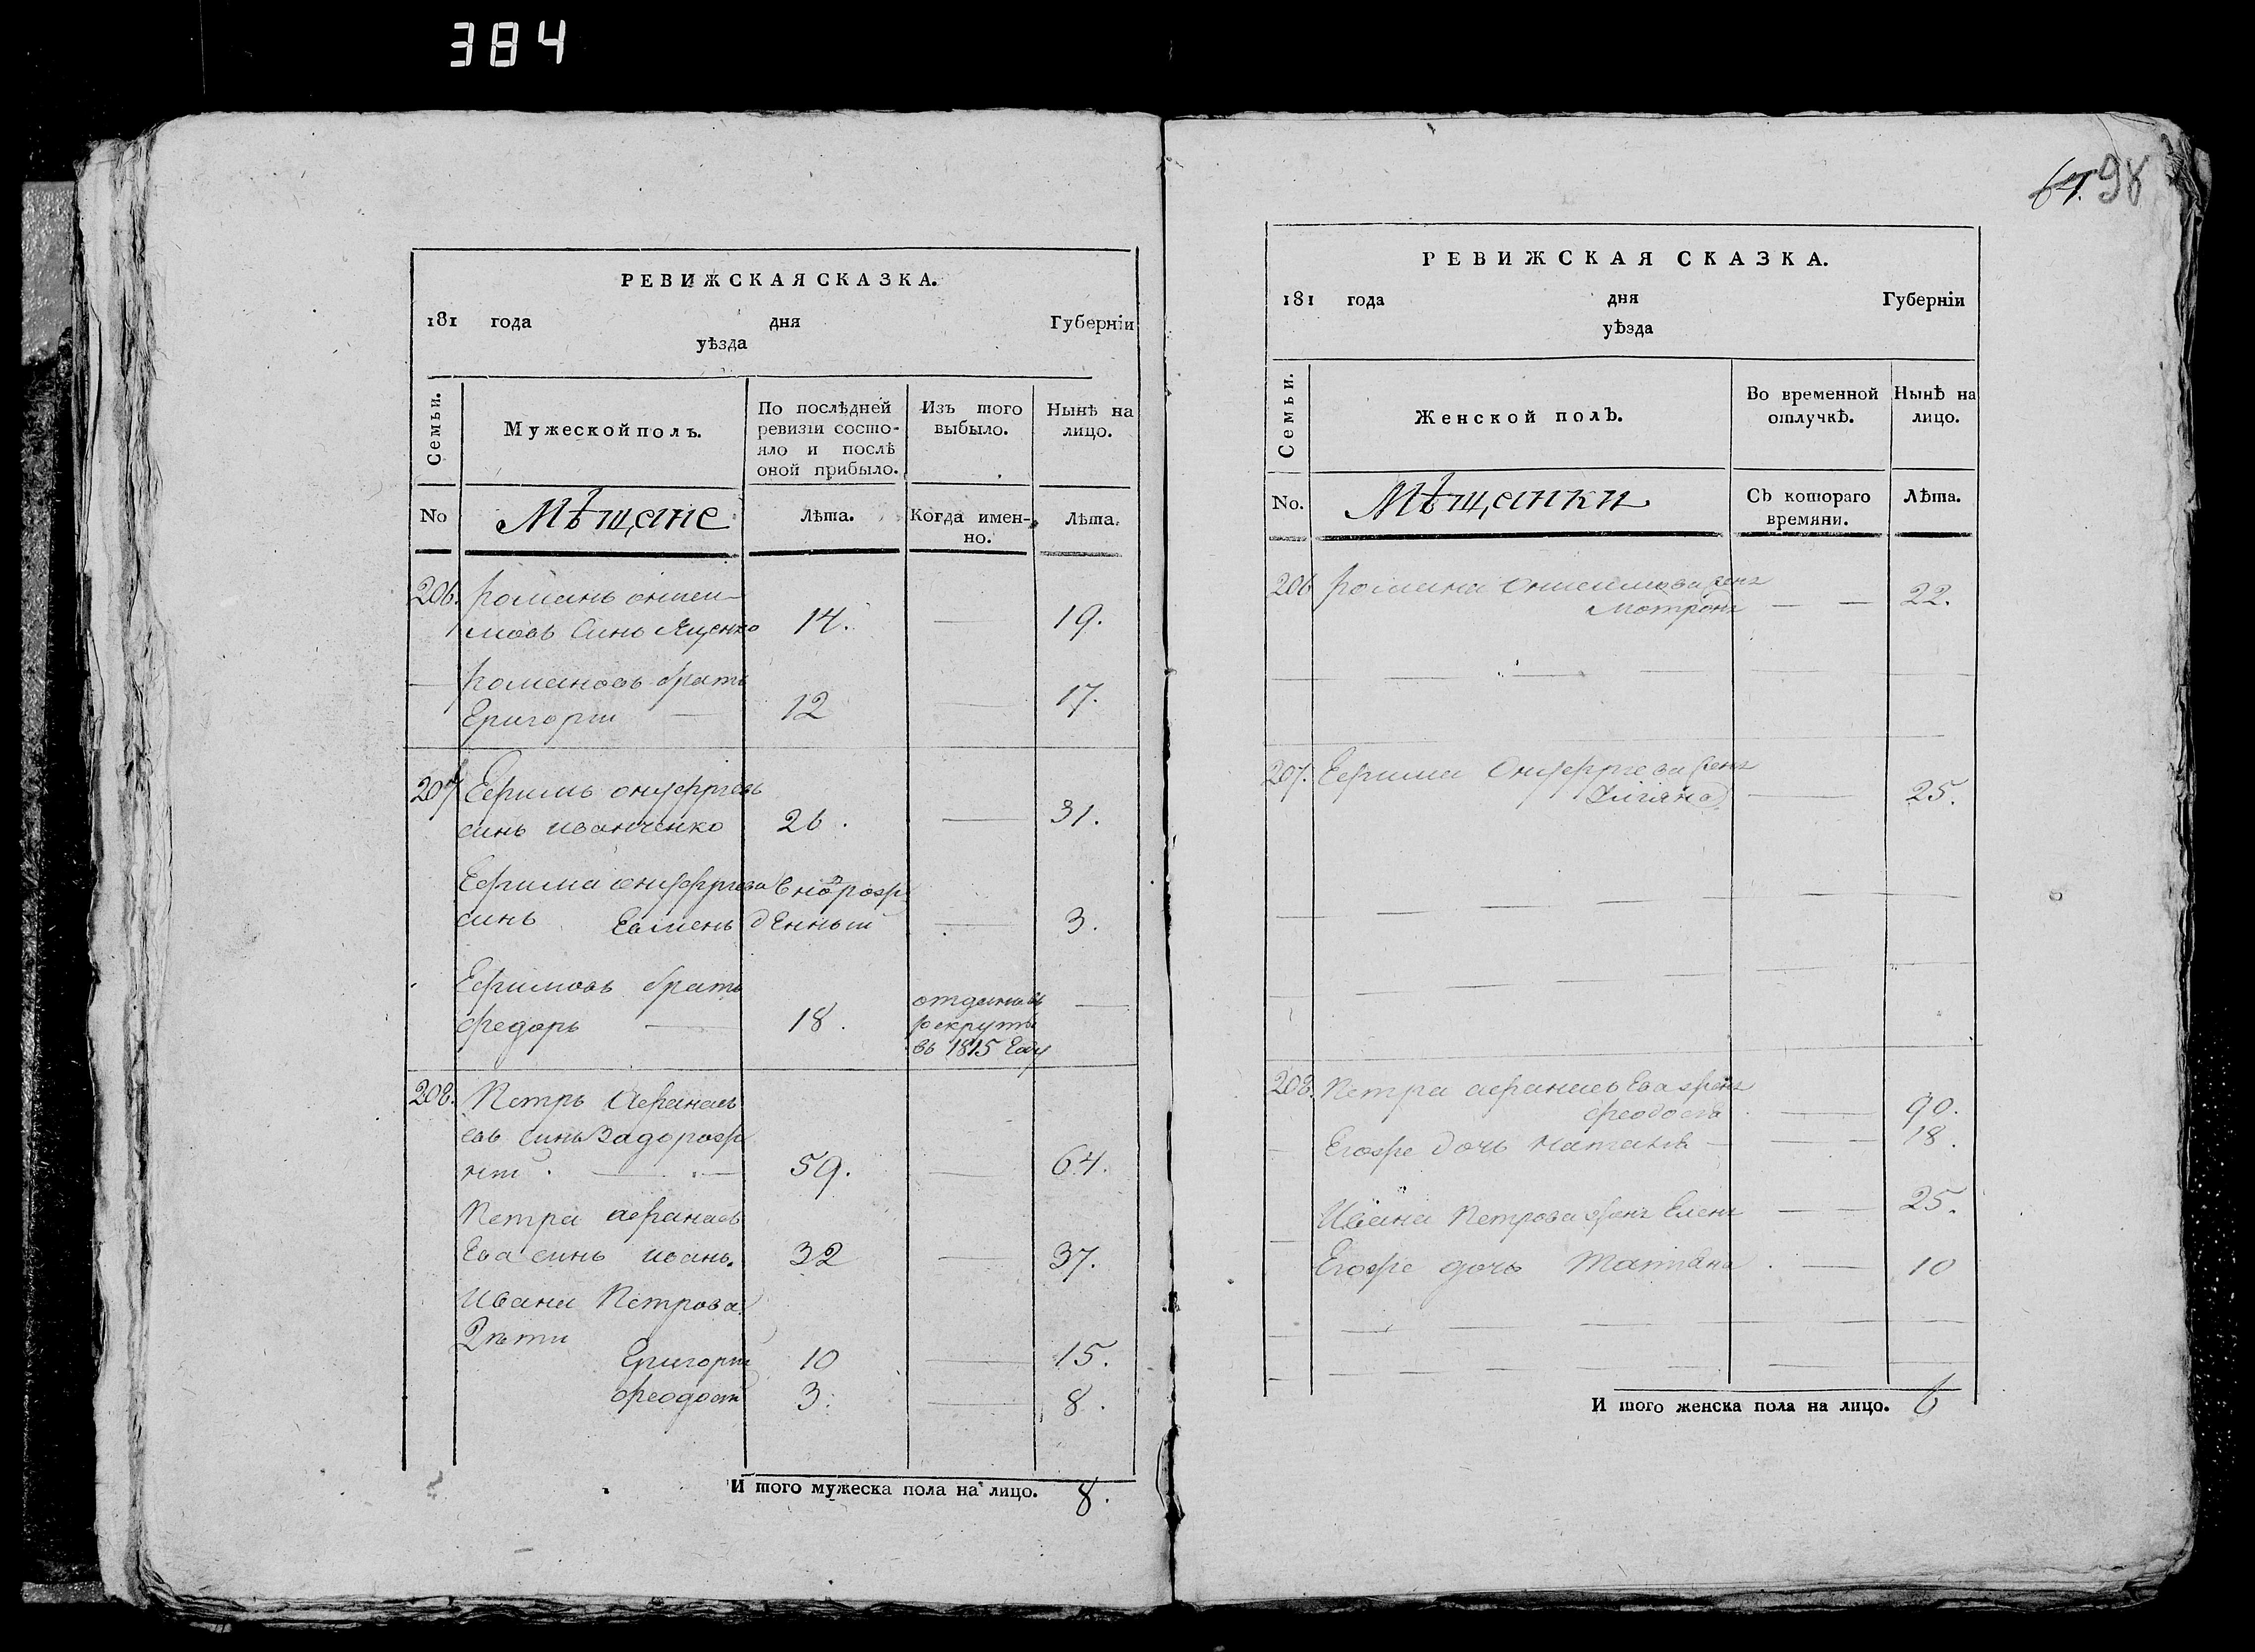 384
64. 98
РЕВИЖСКАЯ СКАЗКА.
181 года дня Губернїи
уѣзда
Семьи.
Мужеской полъ.
По послѣдней ревизїи состо-
яло и послѣ оной прибыло.
Изъ того выбыло.
Нынѣ на лицо.
No
Мѣщане
Лѣта.
Когда имен-
но.
Лѣта.
206. Романъ Ониси-
мовъ синъ Яценко 14. 19.
Романовъ братъ
Григорій 12 17.
207 Ефимъ Онуфріевъ
синъ Иванченко 26. 31.
Ефима Онуфріева Вновьрож
синъ Евмень денный 3.
Ефимовъ братъ
Федоръ 18. отданъ въ
рекруты
въ 1815 году
208. Петръ Афанасъ
евъ синъ Задорож
ній 59. 64.
Петра Афанасъ
ева синъ Иванъ. 32 37.
Ивана Петрова
Дѣти
Григорій 10 15.
Феодосій 3. 8.
И того мужеска пола на лицо. 8.
РЕВИЖСКАЯ СКАЗКА.
181 года дня Губернїи
уѣзда
Семьи.
Женской полъ.
Во временной отлучкѣ.
Нынѣ на лицо.
No.
Мѣщанки
Съ котораго времяни.
Лѣта.
206 Романа Онисимова жена
Мотрона 22.
207. Ефима Онуфріева жена
Уліяна 25.
208. Петра Афанасьева жена
Феодосія 90.
Егоже дочь Наталія 18.
Ивана Петрова жена Елена 25.
Егоже дочь Татіяна 10
И того женска пола на лицо. 6